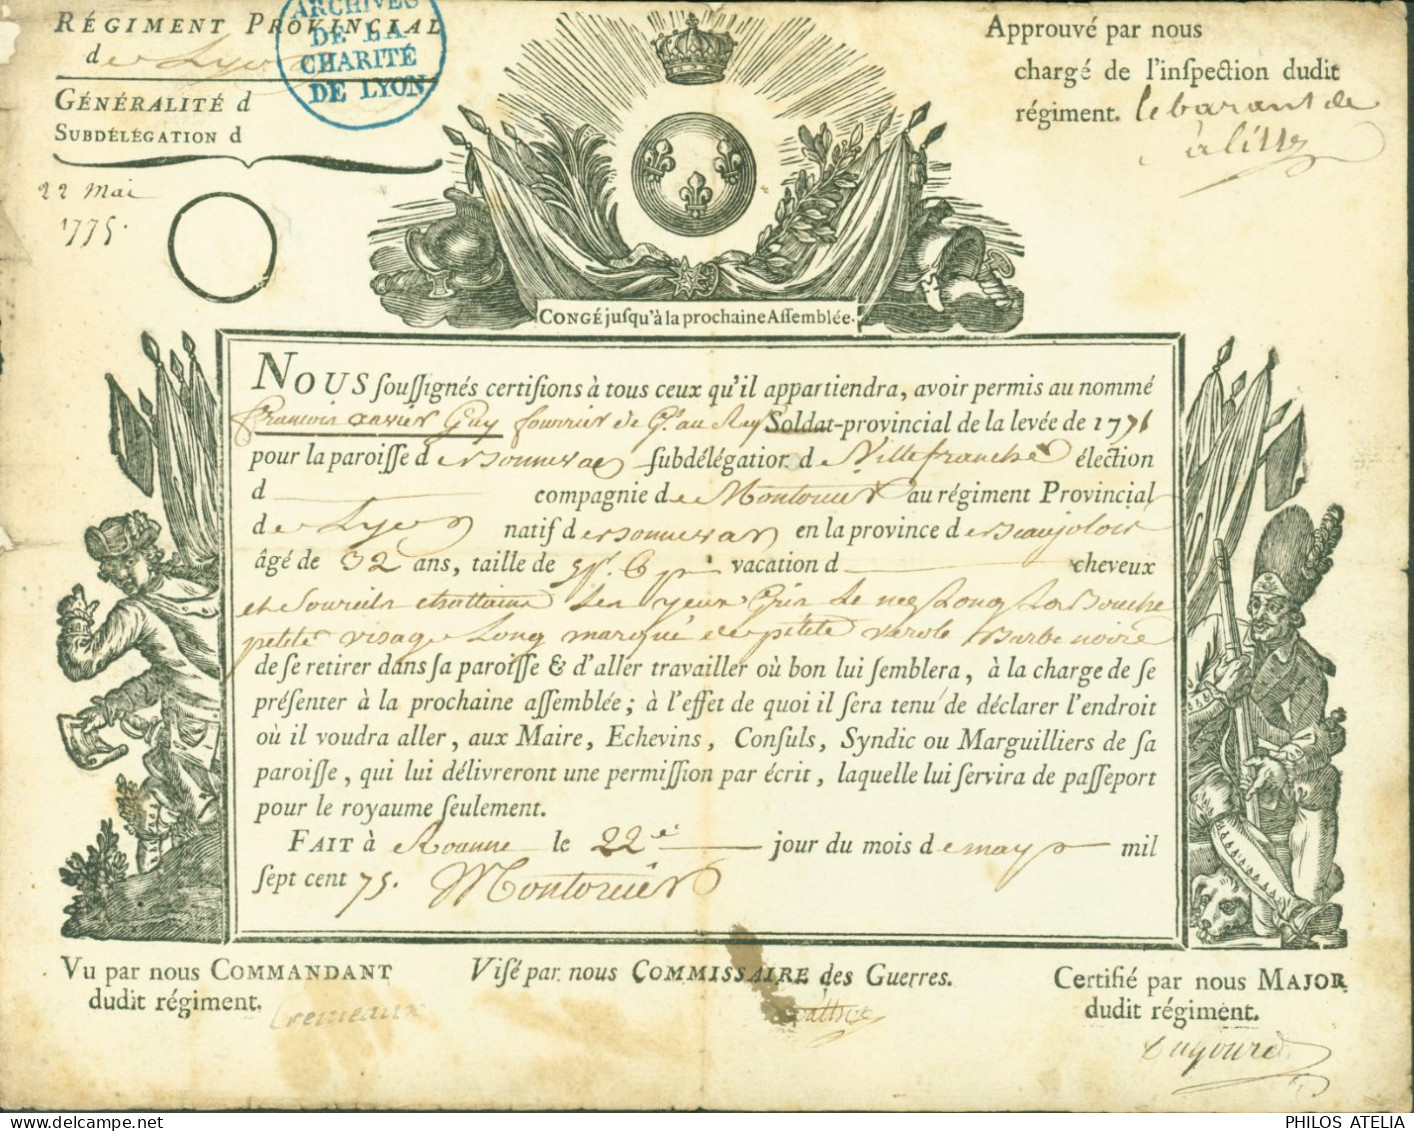 RÉGIMENT PROVINCIAL
de Lyon
GÉNÉRALITÉ d
SUBDÉLÉGATION d
ARCHIVES
DE LA
CHARITÉ
DE LYON
22 Mai
1775.
Approuvé par nous
chargé de l'inſpection dudit
régiment. le baron de
CONGÉ juſqu'à la prochaine Aſſemblée.
NOUS ſouſſignés certiſions à tous ceux qu'il appartiendra, avoir permis au nommé
François Xavier Guy fourrier de Soldat-provincial de la levée de 1771
pour la paroiſſe de ſubdélégation de Villefranche élection
d compagnie de Montouier au régiment Provincial
de Lyon natif de en la province de Beaujolois
âgé de 32 ans, taille de 5 p. 6 p vacation d cheveux
et Sourcils chattains Les yeux Gris Le nez Long La Bouche
petite visage Long marqué de petite verole Barbe noire
de ſe retirer dans ſa paroiſſe & d'aller travailler où bon lui ſemblera, à la charge de ſe
préſenter à la prochaine aſſemblée; à l'effet de quoi il ſera tenu de déclarer l'endroit
où il voudra aller, aux Maire, Echevins, Conſuls, Syndic ou Marguilliers de ſa
paroiſſe, qui lui délivreront une permiſſion par écrit, laquelle lui ſervira de paſſeport
pour le royaume ſeulement.
FAIT à Roanne le 22e jour du mois de may mil
ſept cent 75. Montouier
Vu par nous COMMANDANT
dudit régiment.
Cremeaux
Viſé par nous COMMISSAIRE des Guerres.
Certifié par nous MAJOR
dudit régiment.
Dugoure
PHILOS ATELIA